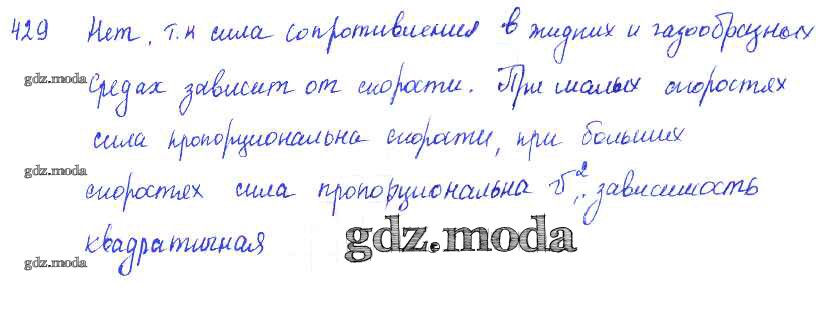 429 Нет, т.к сила сопротивления в жидких и газообразных
gdz.moda средах зависит от скорости. При малых скоростях
сила пропорциональна скорости, при больших
gdz.moda
скоростях сила пропорциональна v², зависимость
квадратичная gdz.moda
gdz.moda